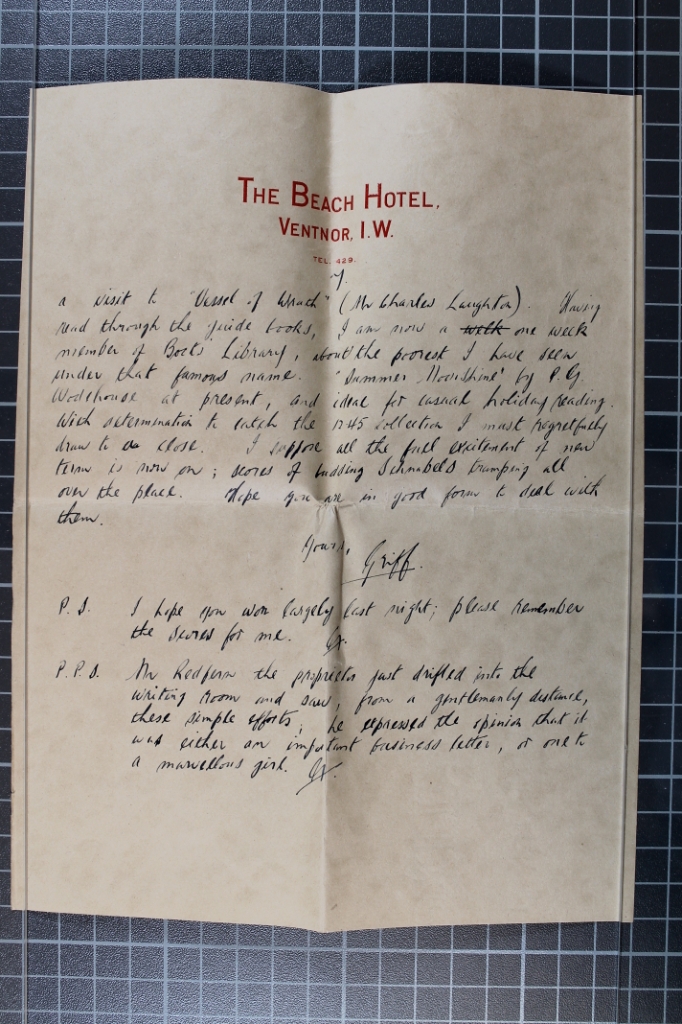 THE BEACH HOTEL,
VENTNOR, I.W.
TEL. 429.
7.
a visit to "Vessel of Wrath" (Mr Charles Laughton). Having
read through the guide books, I am now a week one week
member of Boots' Library, about the poorest I have seen
under that famous name. "Summer Moonshine" by P.G.
Wodehouse at present, and ideal for casual holiday reading.
With determination to catch the 1745 collection I must regretfully
draw to a close. I suppose all the fuel excitement of new
term is now on; scores of budding Schnabels tramping all
over the place. Hope you are in good form to deal with
them.
Yours,
Griff.
P.S. I hope you won largely last night; please remember
the scores for me. Gx.
P.P.S. Mr Redfern the proprietor just drifted into the
writing room and saw, from a gentlemanly distance,
these simple efforts; he expressed the opinion that it
was either an important business letter, or one to
a marvellous girl. Gx.